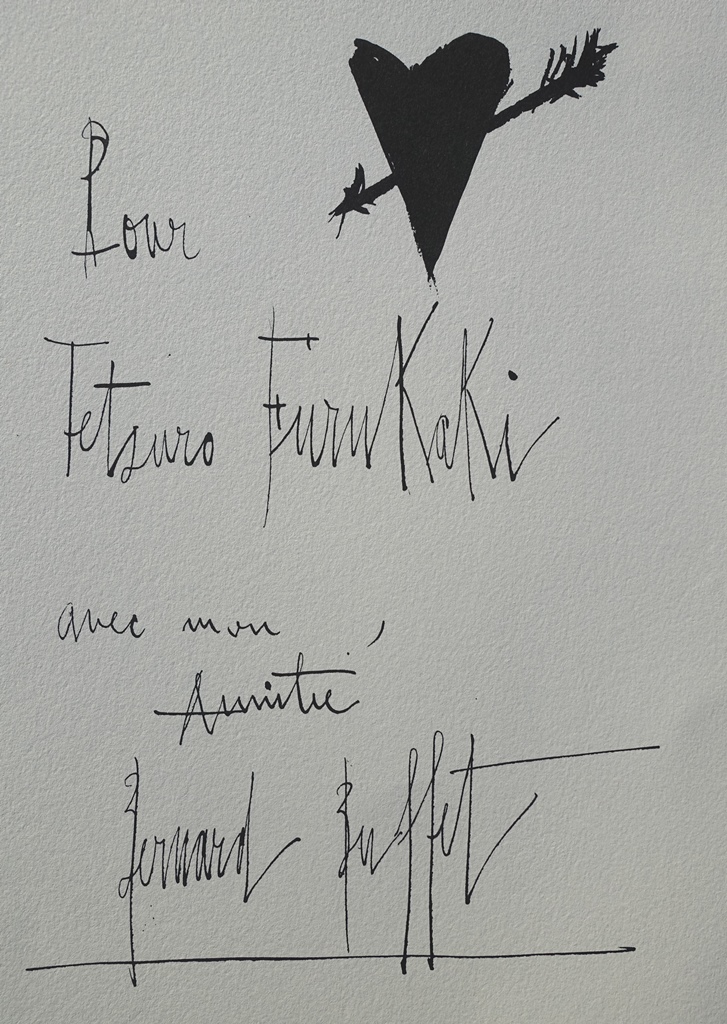 Pour
Tetsuro FuruKaKi
avec mon
Amitié
Bernard Buffet